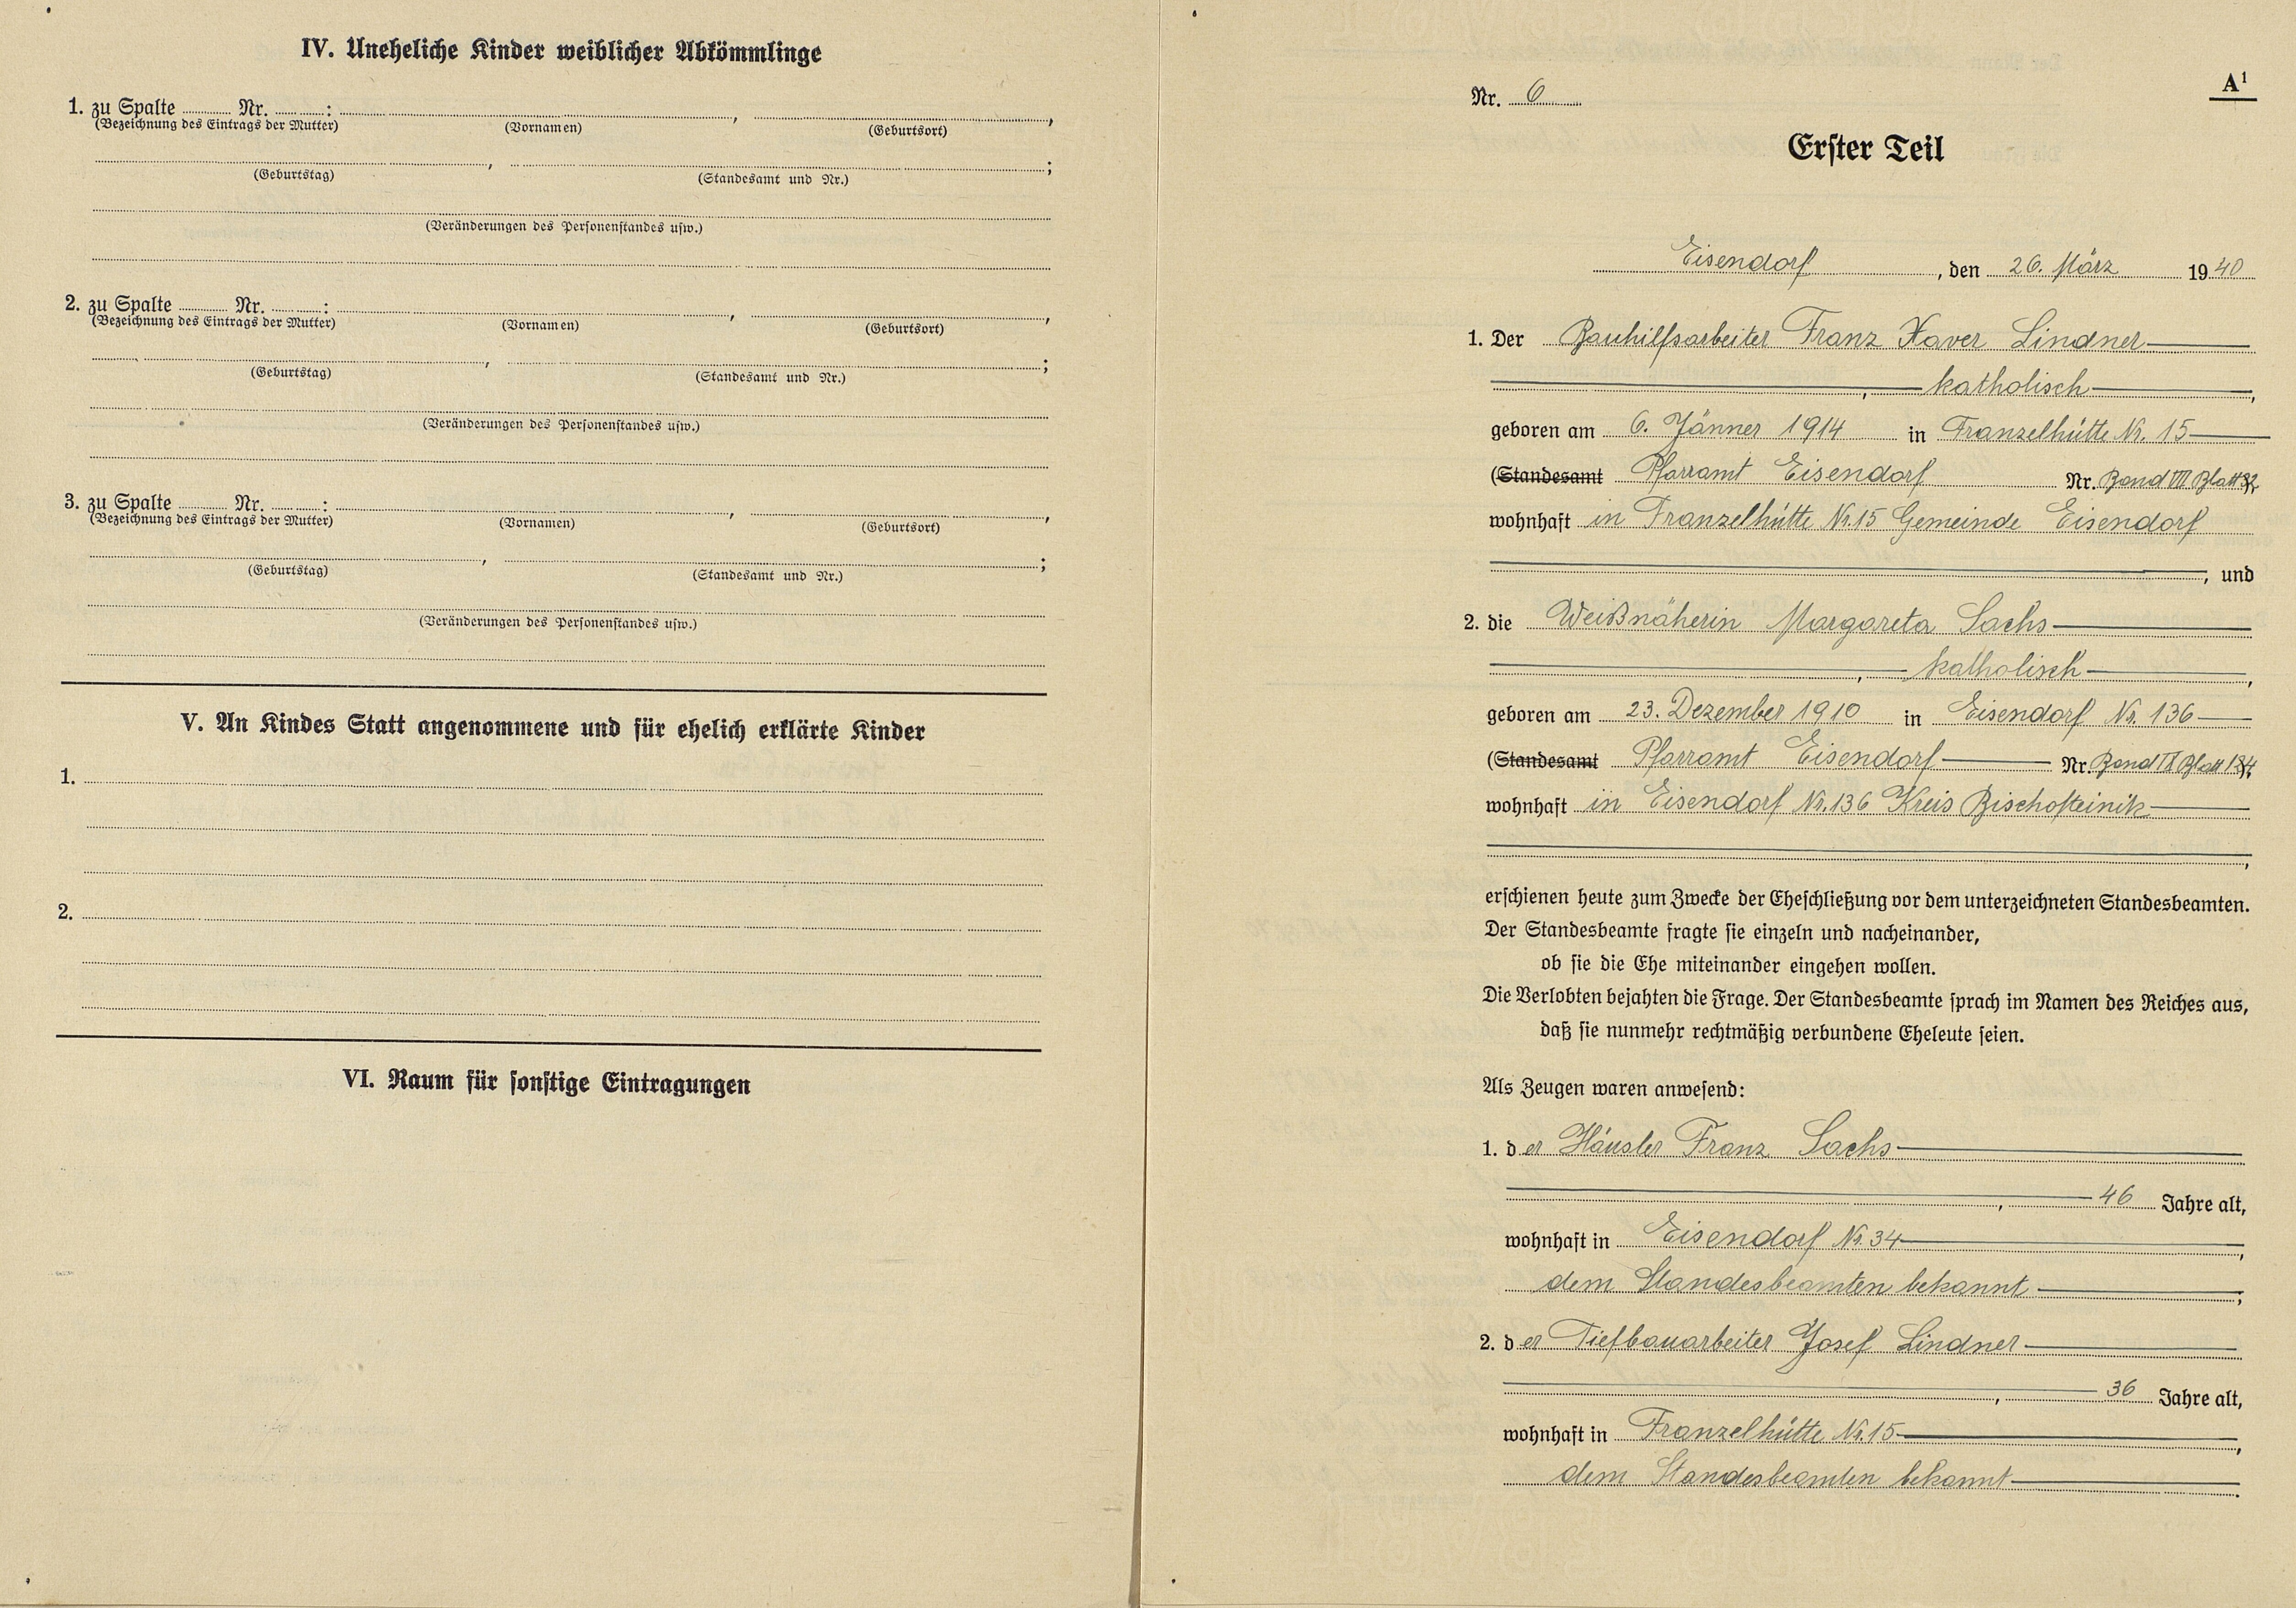 IV. Uneheliche Kinder weiblicher Abkömmlinge
1. zu Spalte ........ Nr. ........ :
(Bezeichnung des Eintrags der Mutter) (Vornamen) , (Geburtsort) ,
(Geburtstag) , (Standesamt und Nr.) ;
(Veränderungen des Personenstandes usw.)
2. zu Spalte ........ Nr. ........ :
(Bezeichnung des Eintrags der Mutter) (Vornamen) , (Geburtsort) ,
(Geburtstag) , (Standesamt und Nr.) ;
(Veränderungen des Personenstandes usw.)
3. zu Spalte ........ Nr. ........ :
(Bezeichnung des Eintrags der Mutter) (Vornamen) , (Geburtsort) ,
(Geburtstag) , (Standesamt und Nr.) ;
(Veränderungen des Personenstandes usw.)
V. An Kindes Statt angenommene und für ehelich erklärte Kinder
1.
2.
VI. Raum für sonstige Eintragungen
A¹
Nr. 6
Erster Teil
Eisendorf, den 26. März 1940
1. Der Bauhilfsarbeiter Franz Xaver Lindner
, katholisch ,
geboren am 6. Jänner 1914 in Franzelhütte Nr. 15
(Standesamt Pfarramt Eisendorf Nr. Band VII Blatt 32),
wohnhaft in Franzelhütte Nr. 15 Gemeinde Eisendorf
, und
2. die Weißnäherin Margareta Sachs
, katholisch ,
geboren am 23. Dezember 1910 in Eisendorf Nr. 136
(Standesamt Pfarramt Eisendorf Nr. Band IX Blatt 184),
wohnhaft in Eisendorf Nr. 136 Kreis Bischofteinik
,
erschienen heute zum Zwecke der Eheschließung vor dem unterzeichneten Standesbeamten.
Der Standesbeamte fragte sie einzeln und nacheinander,
ob sie die Ehe miteinander eingehen wollen.
Die Verlobten bejahten die Frage. Der Standesbeamte sprach im Namen des Reiches aus,
daß sie nunmehr rechtmäßig verbundene Eheleute seien.
Als Zeugen waren anwesend:
1. der Häusler Franz Sachs
, 46 Jahre alt,
wohnhaft in Eisendorf Nr. 34 ,
dem Standesbeamten bekannt ;
2. der Tiefbauarbeiter Josef Lindner
, 36 Jahre alt,
wohnhaft in Franzelhütte Nr. 15 ,
dem Standesbeamten bekannt .